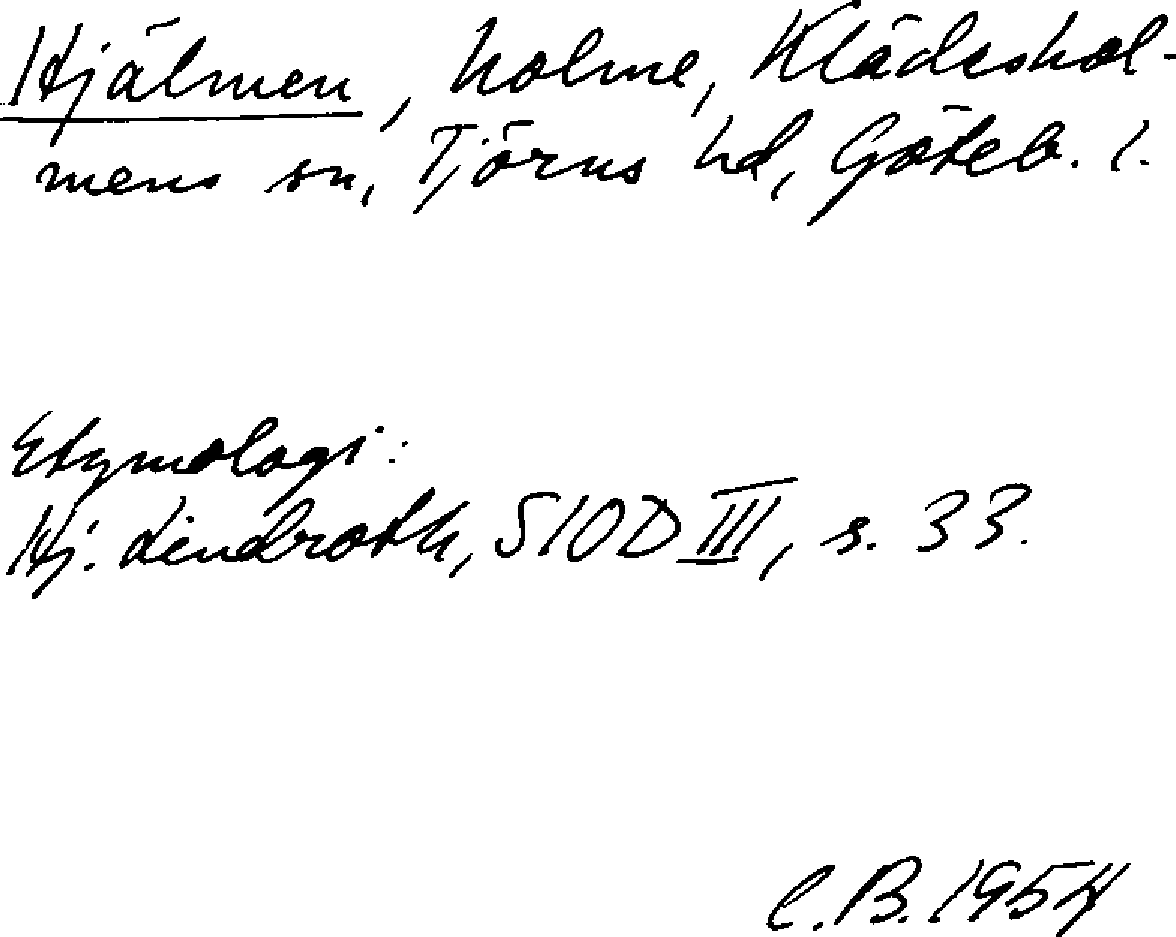 Hjälmen, holme, Klädeshol-
mens sn, Tjörns hd, Göteb. l.
Etymologi:
Hj. Lindroth, SIOD III, s. 33.
C.B. 1954